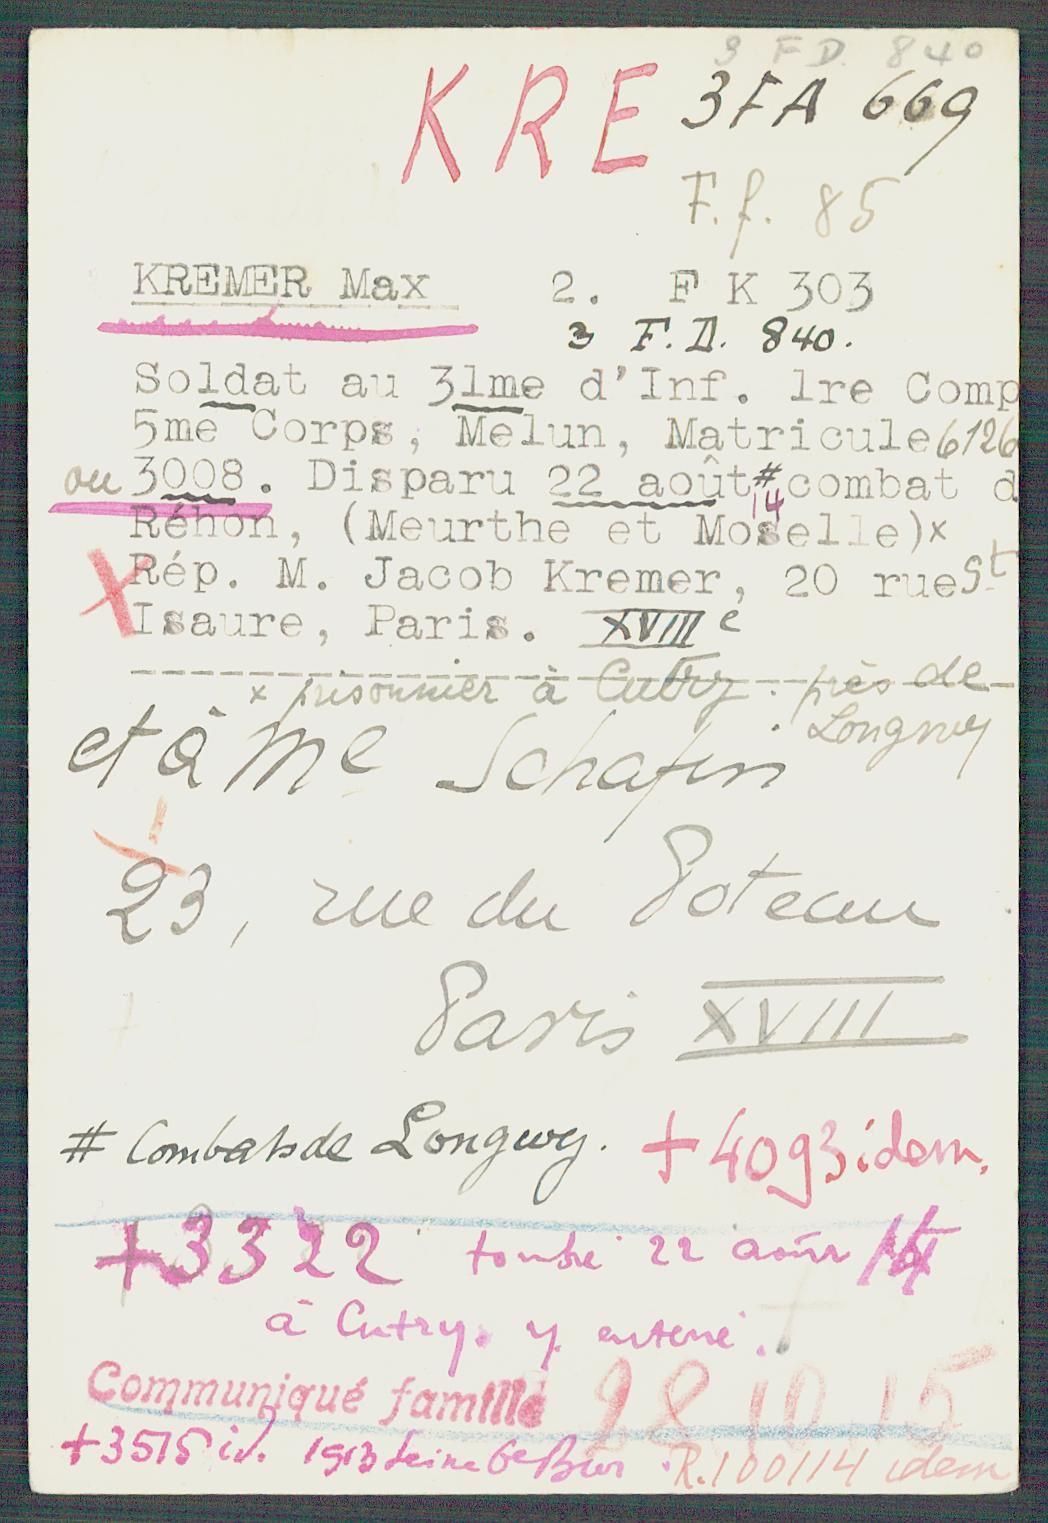 3 F D. 840
KRE 3FA 669
F.f. 85
KREMER Max 2. F K 303
3 F.D. 840.
Soldat au 31me d'Inf. 1re Comp
5me Corps, Melun, Matricule 6126
ou 3008. Disparu 22 août # combat d
14
Réhon, (Meurthe et Moselle)x
X Rép. M. Jacob Kremer, 20 rue St
Isaure, Paris. XVIII e
x prisonnier à Cutry. près de
Longwy
et à Me Schafen
23, rue du Poteau
Paris XVIII
# Combats de Longwy. + 4093 idem.
+3322 tombé 22 août 14
à Cutry. y enterré.
Communiqué famille 28 10 15
+3515 id. 1913 Seine 6e Bur. R.100114 idem